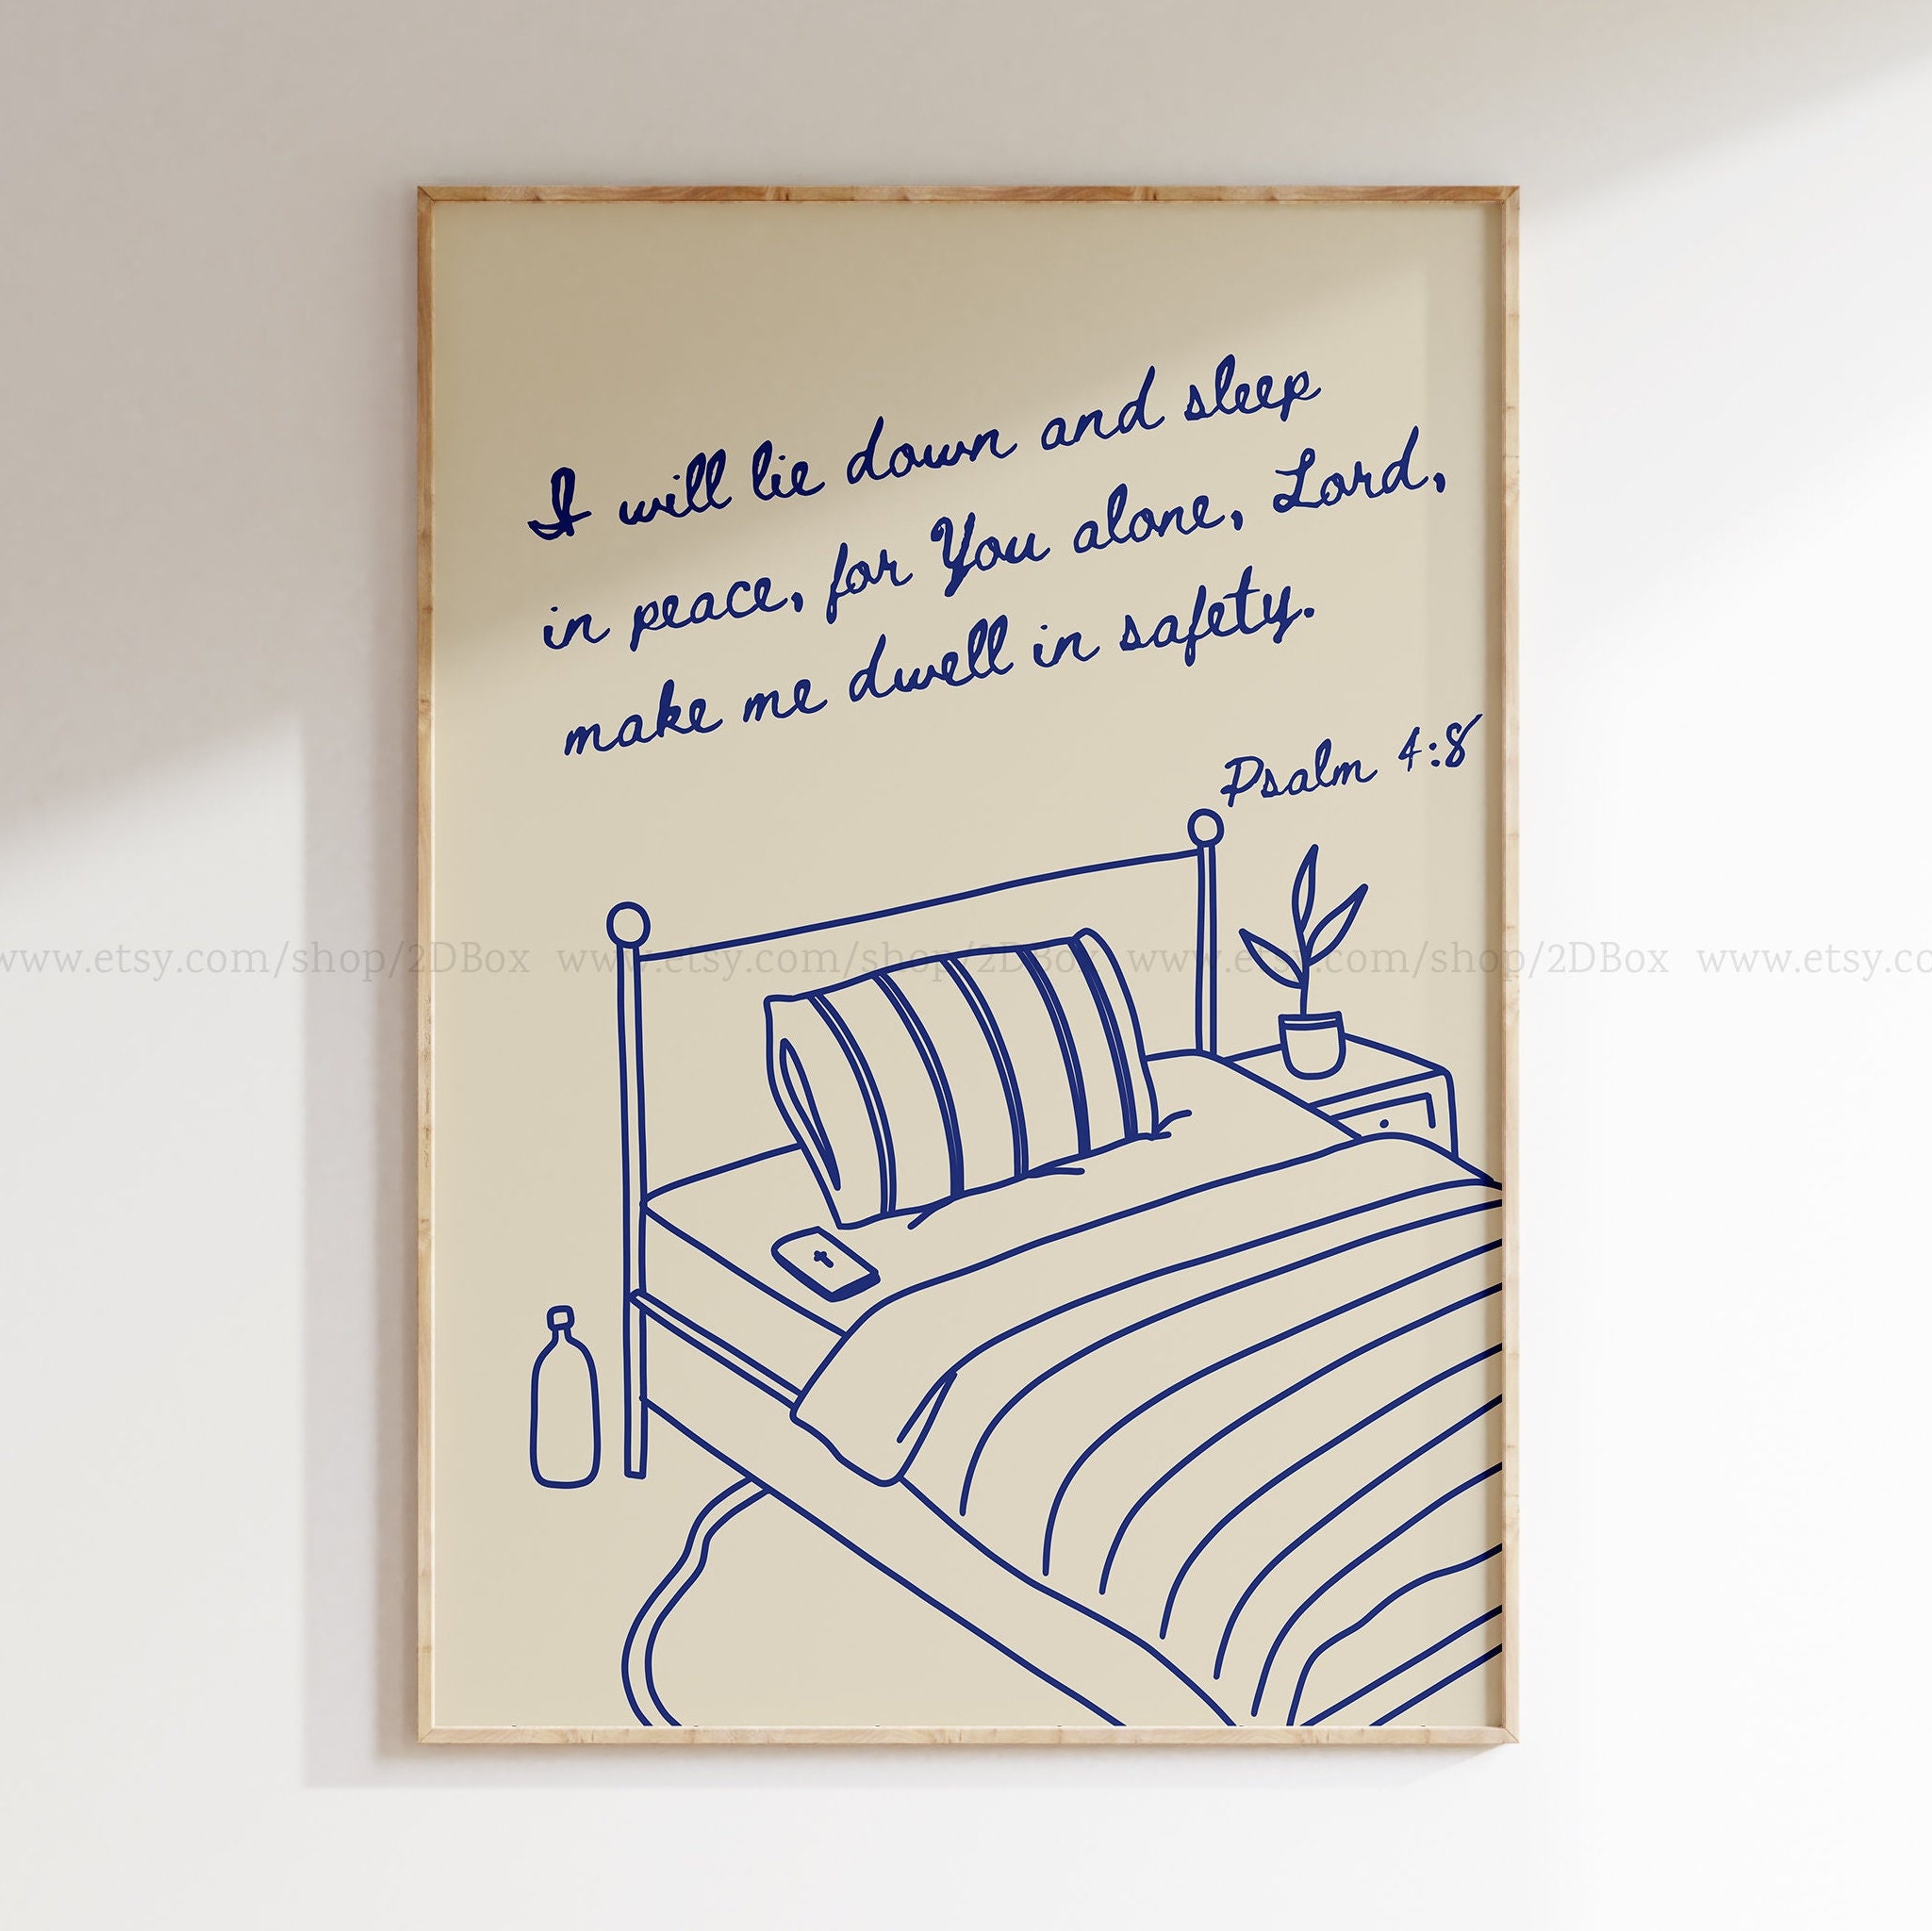 I will lie down and sleep
in peace, for You alone, Lord,
make me dwell in safety.
Psalm 4:8
www.etsy.com/shop/2DBox www.etsy.com/shop/2DBox www.etsy.com/shop/2DBox www.etsy.co